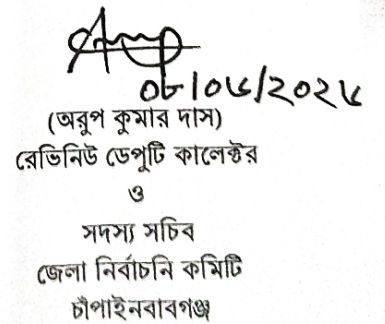 ০৮/০৬/২০২৬
(অরুপ কুমার দাস)
রেভিনিউ ডেপুটি কালেক্টর
ও
সদস্য সচিব
জেলা নির্বাচনি কমিটি
চাঁপাইনবাবগঞ্জ